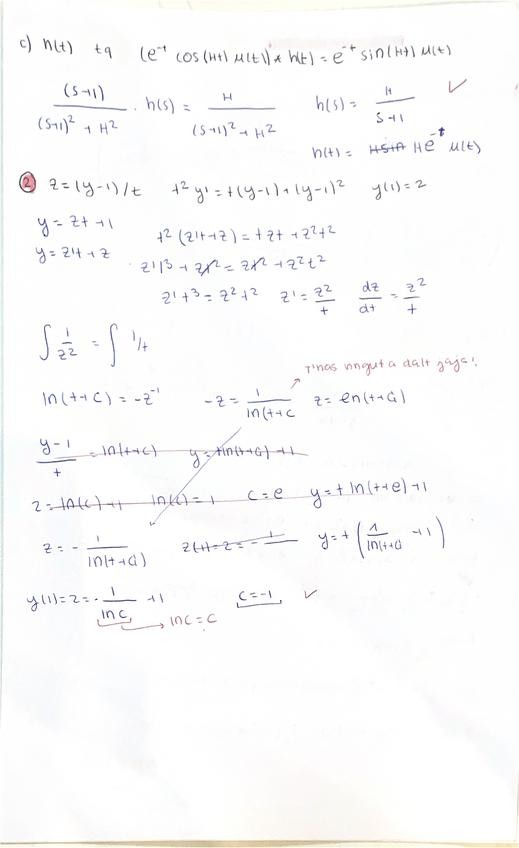 c) h(t) tq (e^-t cos(Ht) μ(t)) * h(t) = e^-t sin(Ht) μ(t)
(s+1)/((s+1)² + H²) · h(s) = H/((s+1)² + H²) h(s) = H/(s+1) ✓
h(t) = H e^-t μ(t)
② z = (y-1)/t t² y' = t(y-1) + (y-1)² y(1) = 2
y = zt + 1
t² (z't+z) = t zt + z²t²
y' = z't + z
z't³ + zt² = zt² + z²t²
z't³ = z²t² z' = z²/t dz/dt = z²/t
∫ 1/z² = ∫ 1/t
Tines
ln(t+C) = -z^-1 -z = 1/ln(t+C z = ln(t+C)
(y-1)/t = ln(t+C) y = t ln(t+C) + 1
2 = ln(C) + 1 ln(C) = 1 C = e y = t ln(t+e) + 1
z = - 1/ln(t+C) z(1) = 2 = - 1 y = t (1/ln(t+C + 1)
y(1) = 2 = - 1/ln C + 1 C = -1 ✓
ln C = C